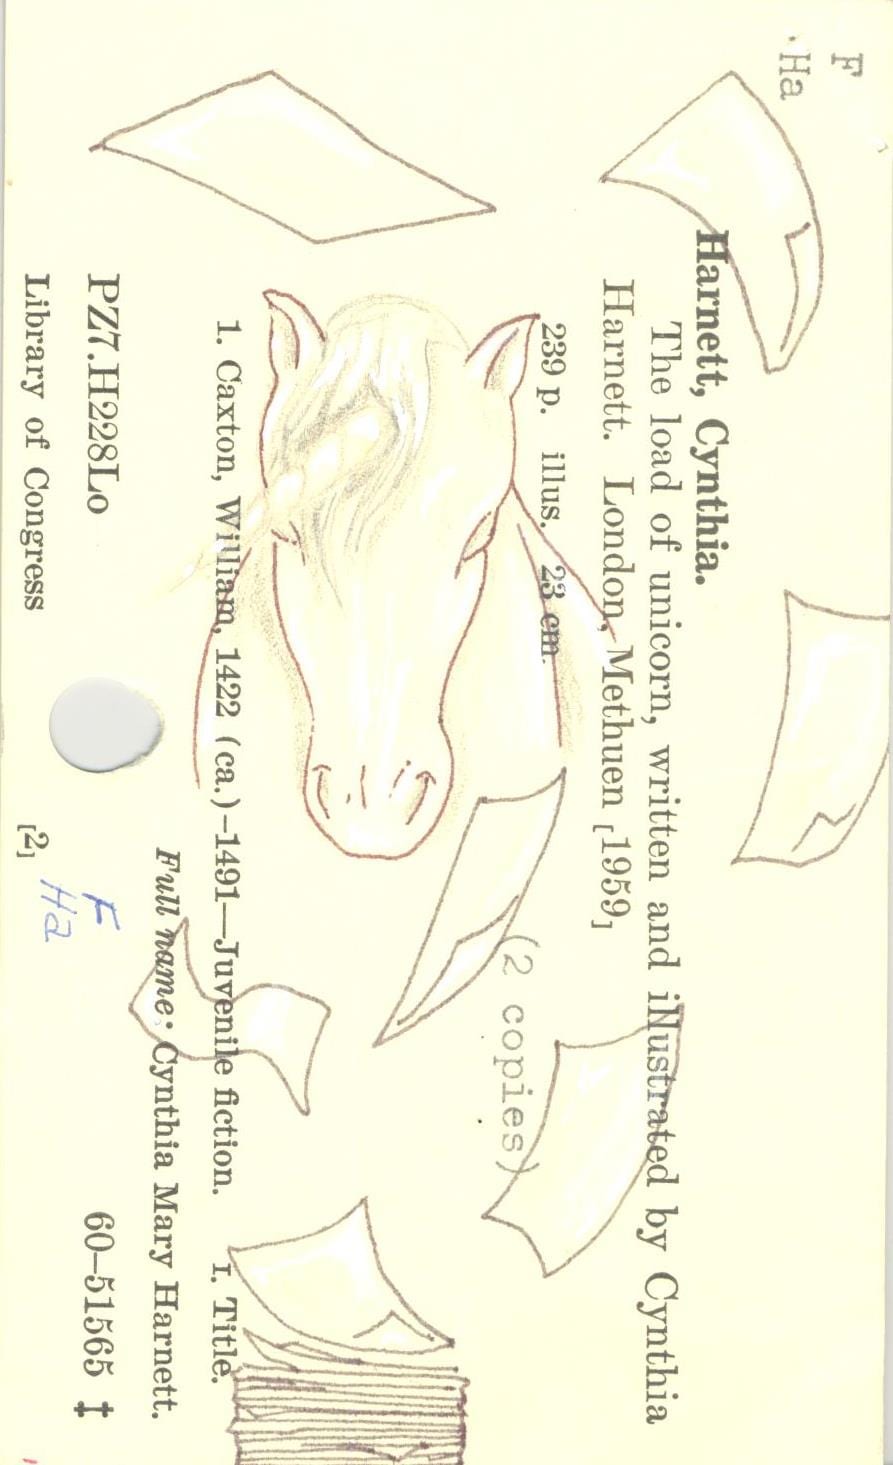 F
Ha
Harnett, Cynthia.
The load of unicorn, written and illustrated by Cynthia
Harnett. London, Methuen [1959]
239 p. illus. 23 cm.
(2 copies)
1. Caxton, William, 1422 (ca.)–1491—Juvenile fiction. I. Title.
Full name: Cynthia Mary Harnett.
PZ7.H228Lo 60–51565 ‡
Library of Congress [2]
F
Ha